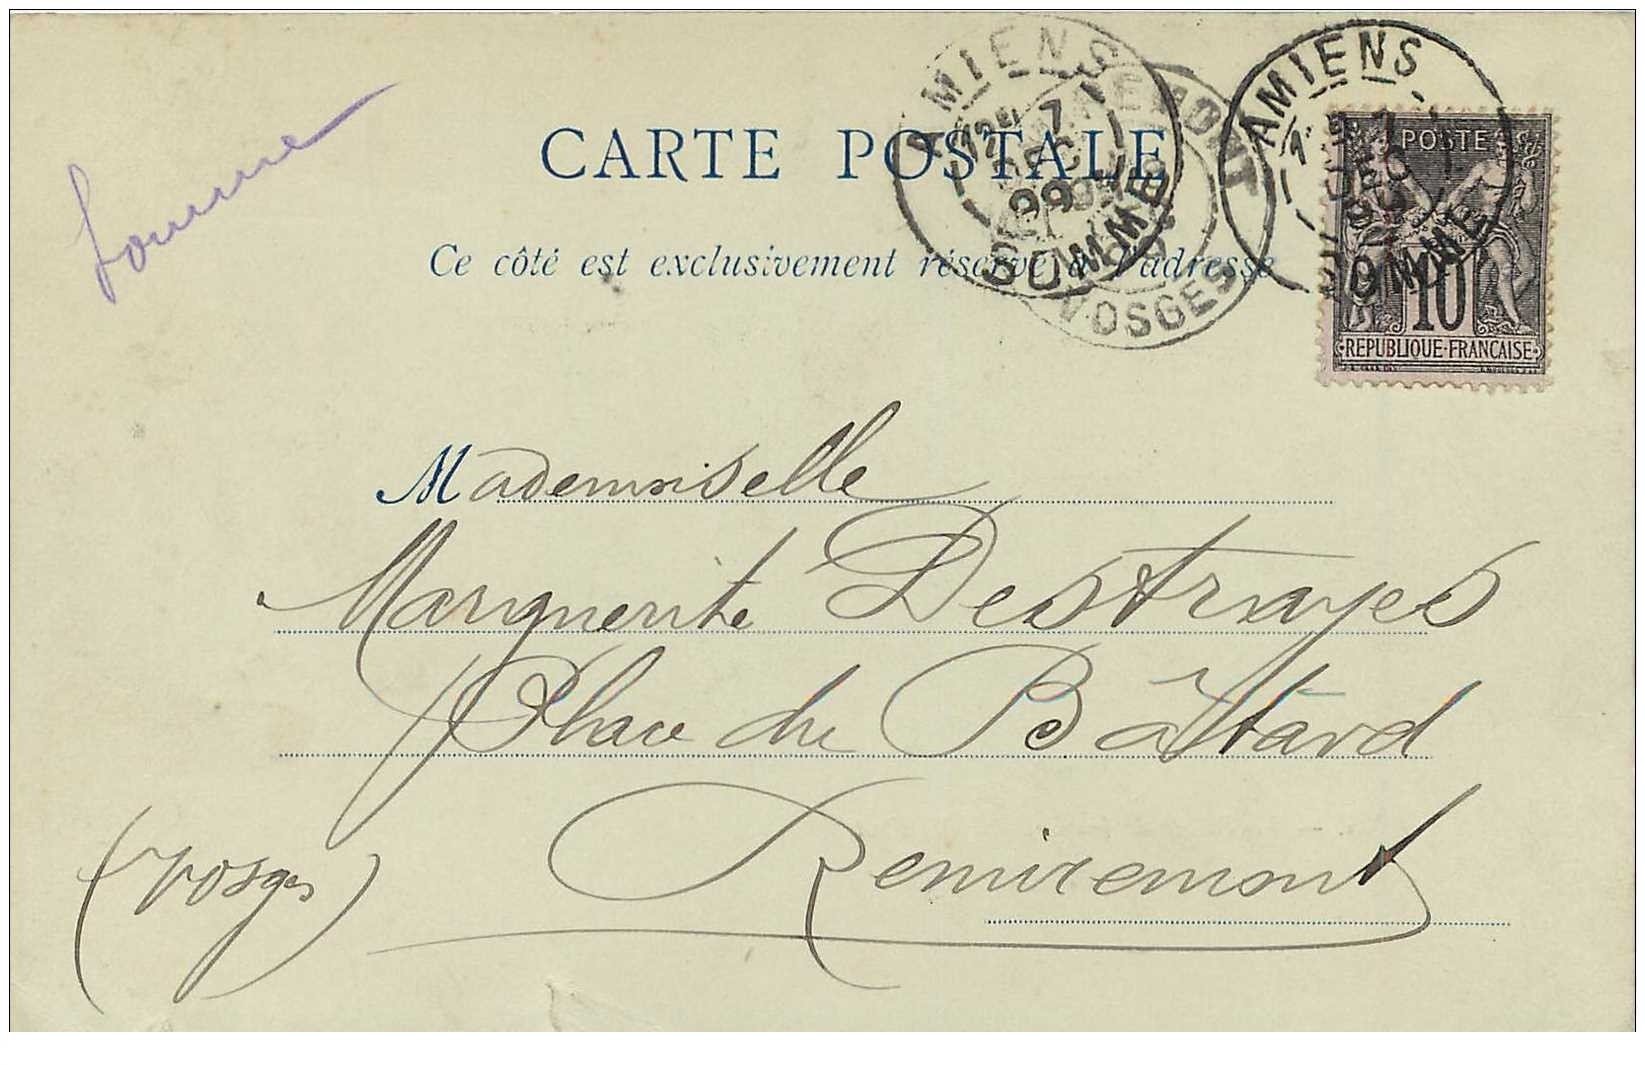 Somme
CARTE POSTALE
Ce côté est exclusivement réservé à l'adresse
AMIENS
7
DEC
99
SOMME
REMIREMONT
VOSGES
AMIENS
7
DEC
99
SOMME
POSTE
10
REPUBLIQUE-FRANCAISE
Mademoiselle
Marguerite Destrayes
Place du Bâttard
Remiremont
(Vosges)